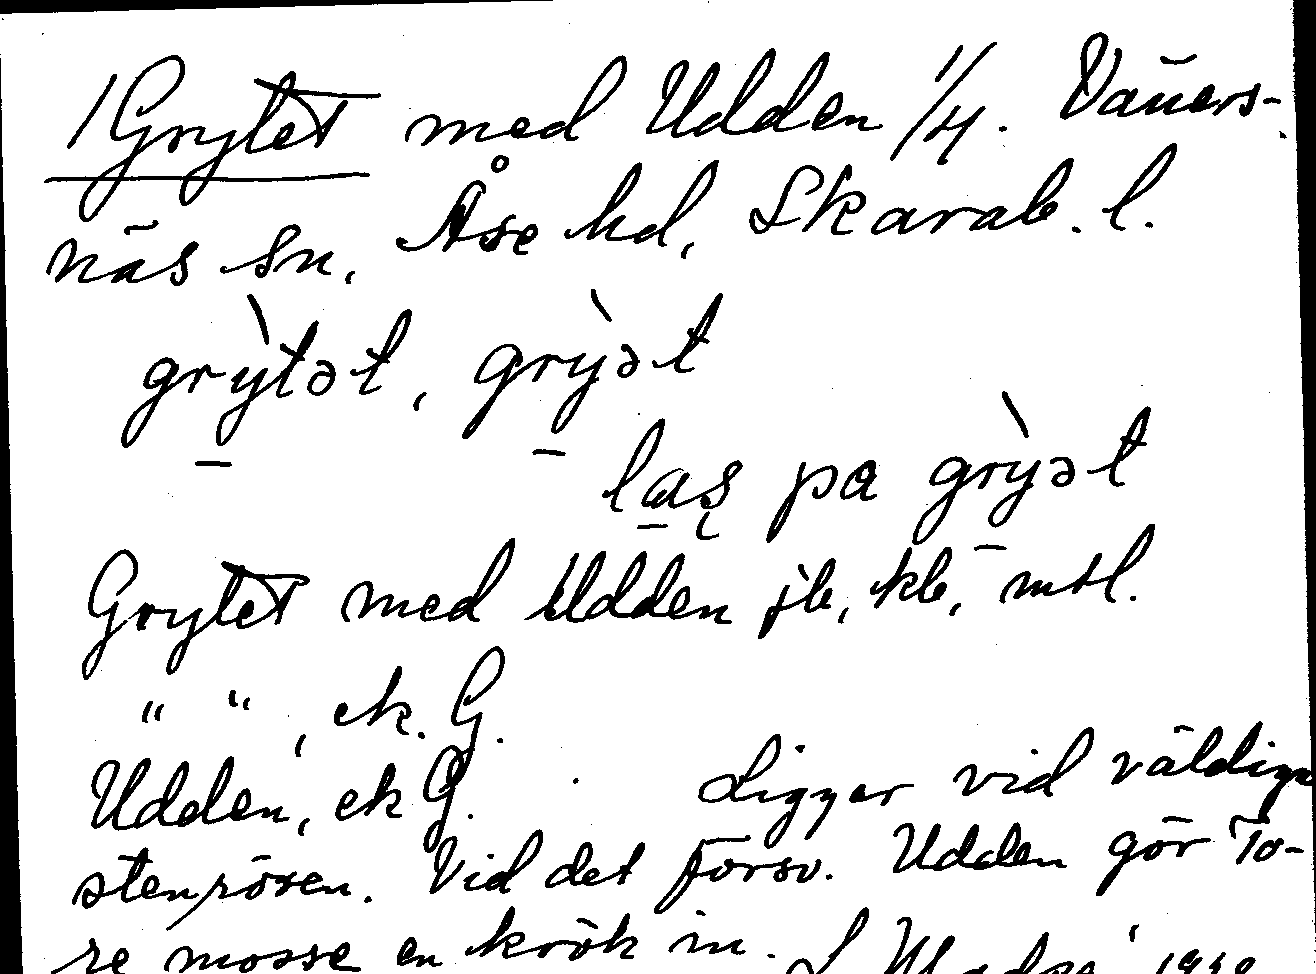 /Grytet med Udden 1/4. Väners-
näs sn. Åse hd, Skarab. l.
grỳtət, grỳət
las̨ pa grỳət
Grytet med Udden jb, kb, mtl.
" ", ek. G.
Udden, ek G. Ligger vid väldiga
stenrösen. Vid det försv. Udden gör To-
re mosse en krök in.